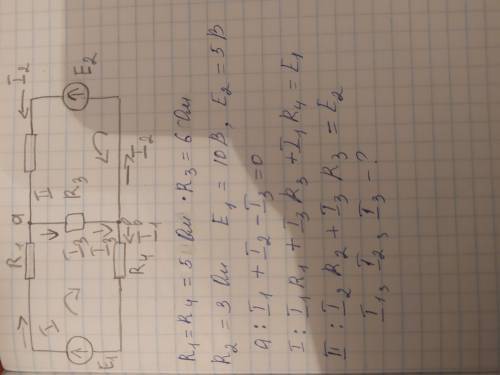 I₂
E₂
I
R₃
I₂
a
R₁
I₃
I₃
b
I₁
R₄
I
E₁
R₁ = R₄ = 5 Ом · R₃ = 6 Ом
R₂ = 3 Ом E₁ = 10 В, E₂ = 5 В
a : I₁ + I₂ - I₃ = 0
I : I₁R₁ + I₃R₃ + I₁R₄ = E₁
II : I₂R₂ + I₃R₃ = E₂
I₁, I₂, I₃ - ?